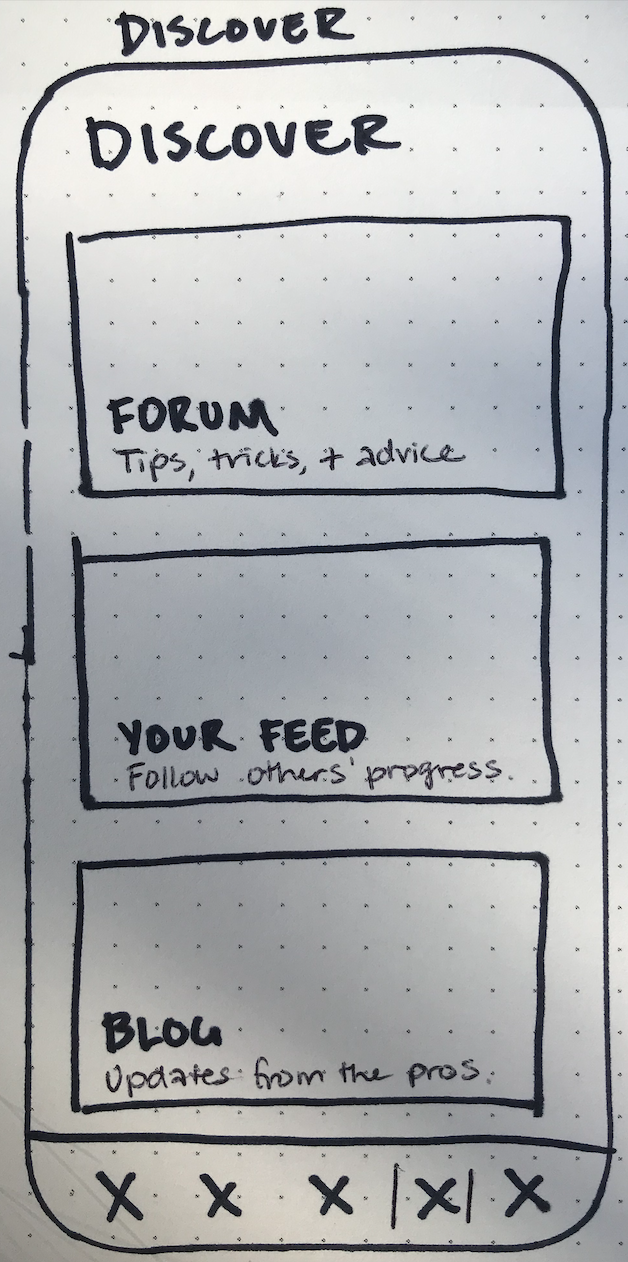 DISCOVER
DISCOVER
FORUM
Tips, tricks, + advice
YOUR FEED
Follow others' progress.
BLOG
Updates from the pros.
X X X |X| X